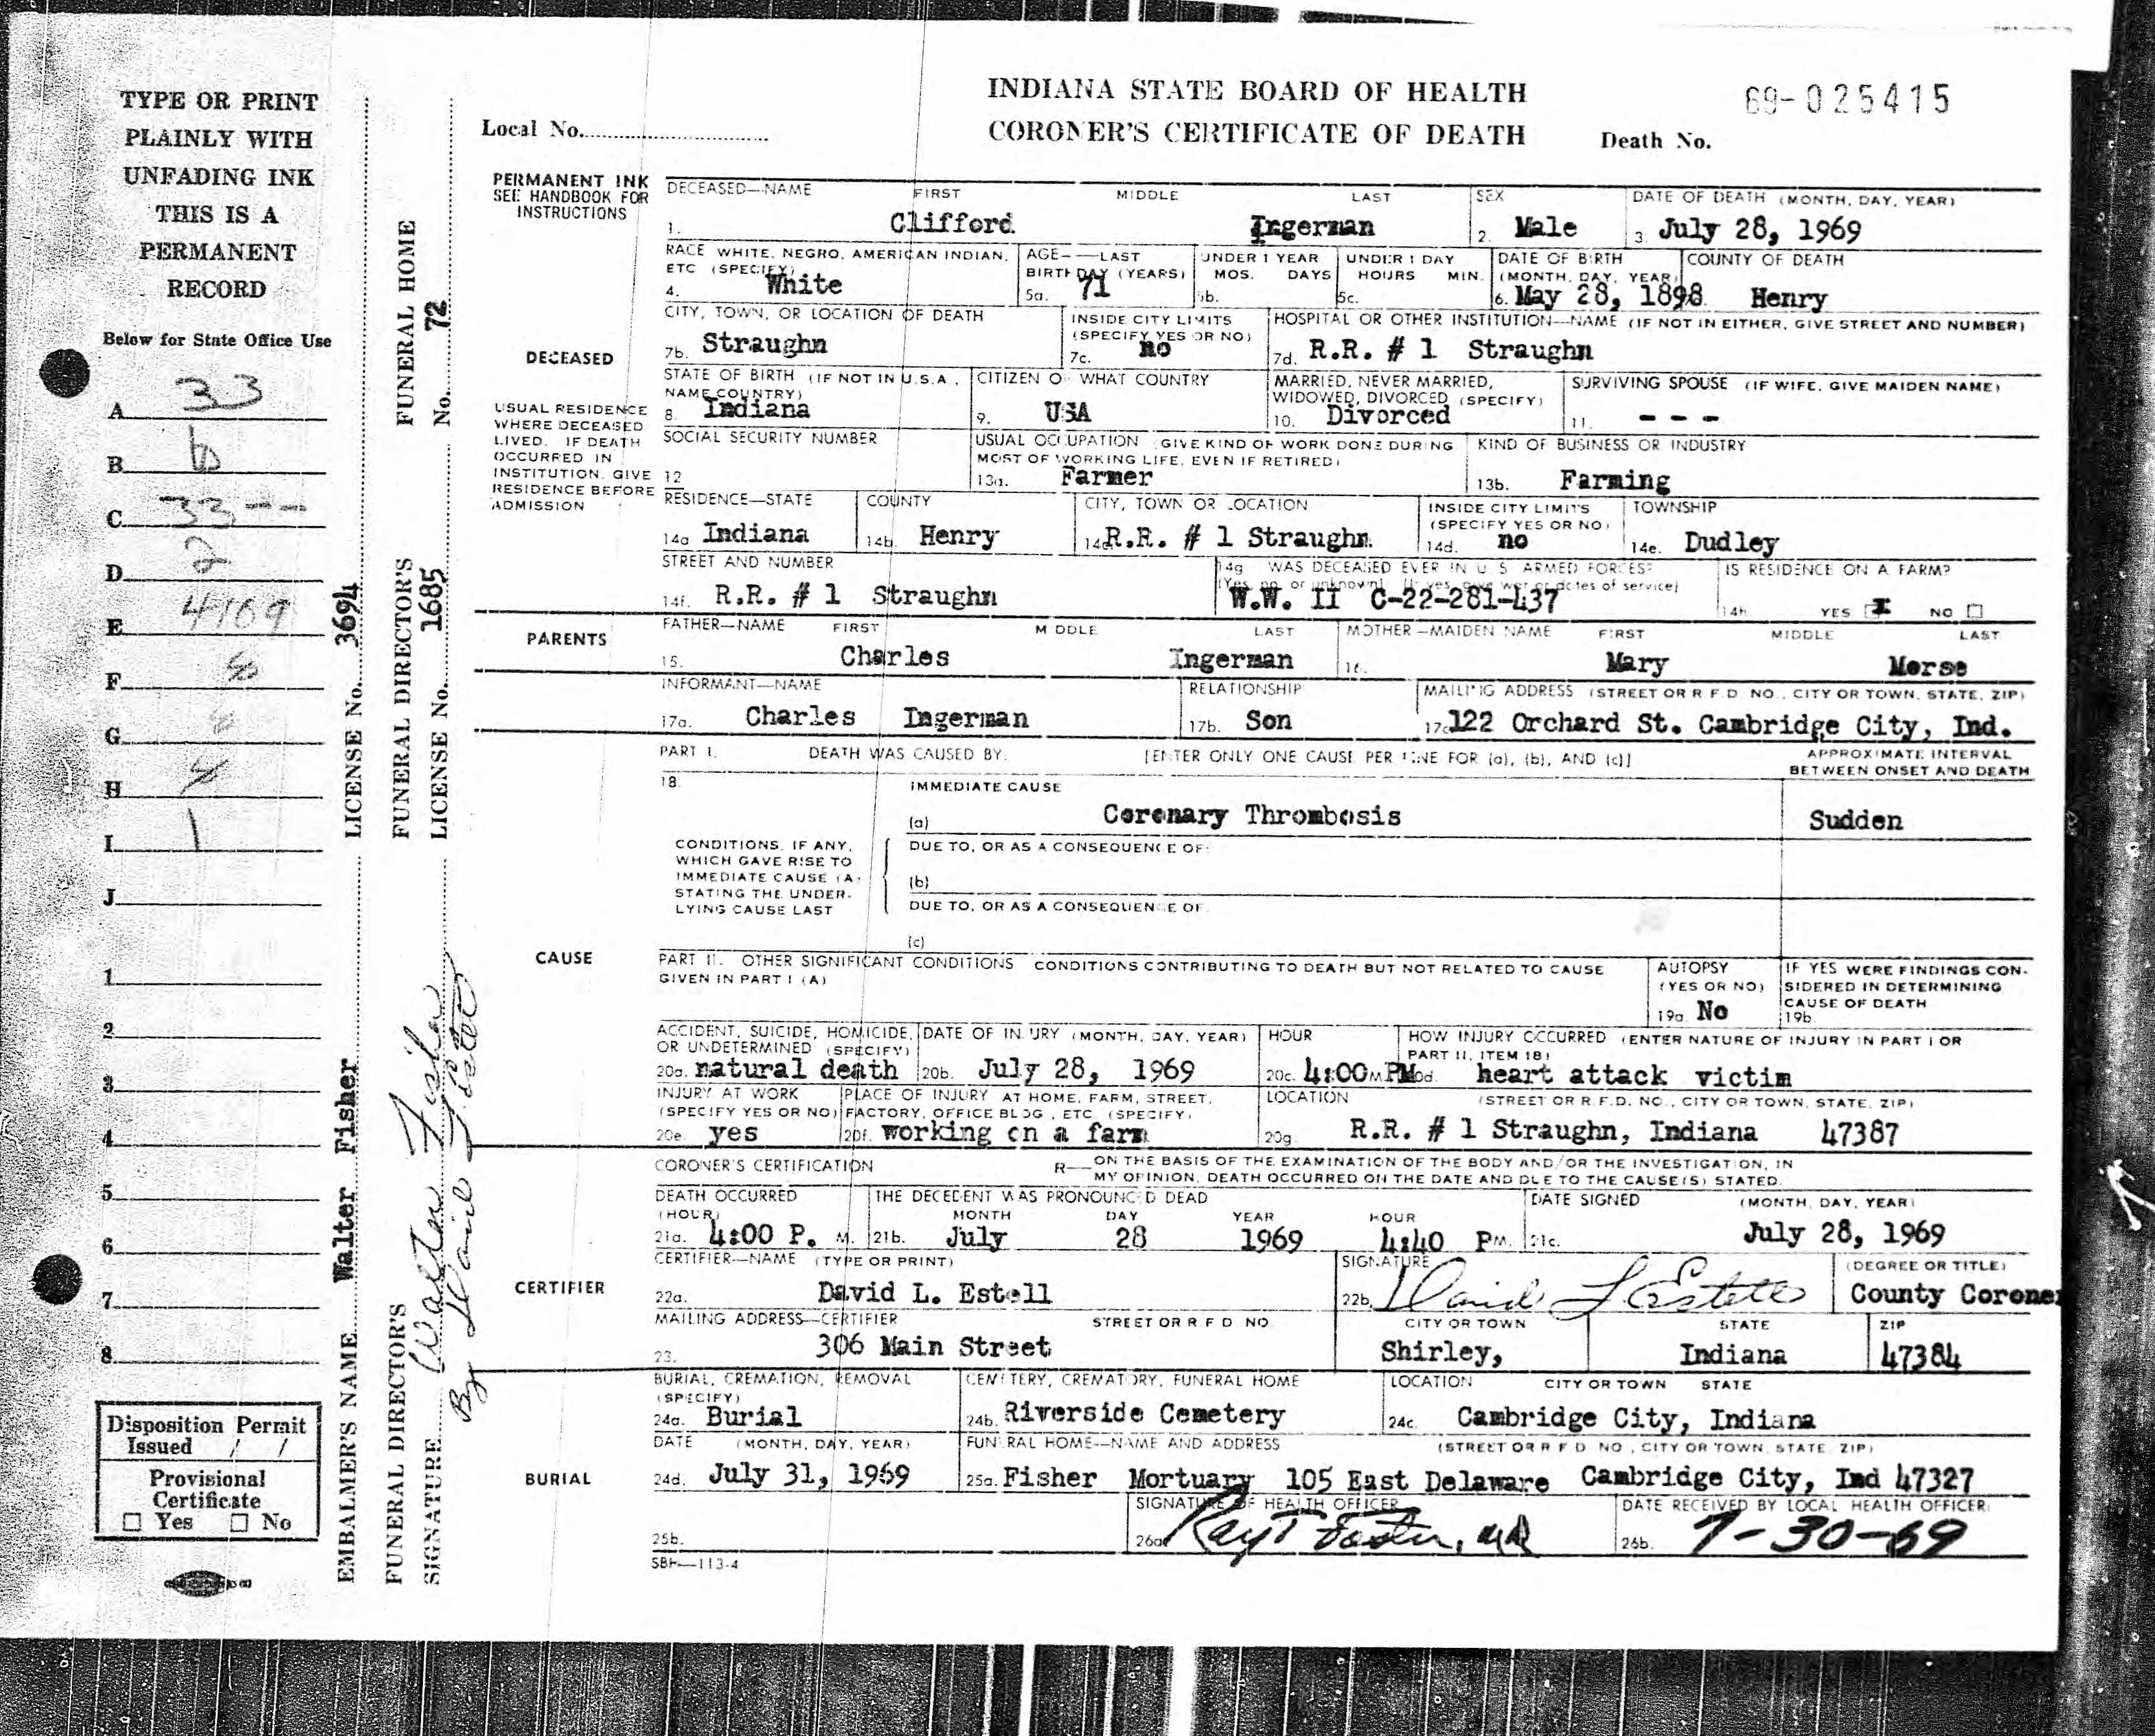 TYPE OR PRINT
PLAINLY WITH
UNFADING INK
THIS IS A
PERMANENT
RECORD
Below for State Office Use
A 33
B b
C 33--
D 2
E 4109
F 8
G
H 4
I 1
J
1
2
3
4
5
6
7
8
Disposition Permit
Issued / /
Provisional
Certificate
☐ Yes ☐ No
EMBALMER'S NAME Walter Fisher LICENSE No. 3694
FUNERAL DIRECTOR'S FUNERAL DIRECTOR'S FUNERAL HOME
SIGNATURE Walter Fisher LICENSE No. 1685 No. 72
By
INDIANA STATE BOARD OF HEALTH
CORONER'S CERTIFICATE OF DEATH
Local No.
Death No.
69-025415
PERMANENT INK
SEE HANDBOOK FOR
INSTRUCTIONS
DECEASED
USUAL RESIDENCE
WHERE DECEASED
LIVED. IF DEATH
OCCURRED IN
INSTITUTION, GIVE
RESIDENCE BEFORE
ADMISSION
DECEASED—NAME FIRST MIDDLE LAST SEX DATE OF DEATH (MONTH, DAY, YEAR)
1. Clifford Ingerman 2. Male 3. July 28, 1969
RACE WHITE, NEGRO, AMERICAN INDIAN, AGE——LAST UNDER 1 YEAR UNDER 1 DAY DATE OF BIRTH COUNTY OF DEATH
ETC (SPECIFY) BIRTHDAY (YEARS) MOS. DAYS HOURS MIN. (MONTH, DAY, YEAR)
4. White 5a. 71 5b. 5c. 6. May 28, 1898 Henry
CITY, TOWN, OR LOCATION OF DEATH INSIDE CITY LIMITS HOSPITAL OR OTHER INSTITUTION—NAME (IF NOT IN EITHER, GIVE STREET AND NUMBER)
(SPECIFY YES OR NO)
7b. Straughn 7c. no 7d. R.R. # 1 Straughn
STATE OF BIRTH (IF NOT IN U.S.A., CITIZEN OF WHAT COUNTRY MARRIED, NEVER MARRIED, SURVIVING SPOUSE (IF WIFE, GIVE MAIDEN NAME)
NAME COUNTRY) WIDOWED, DIVORCED (SPECIFY)
8. Indiana 9. USA 10. Divorced 11. - - -
SOCIAL SECURITY NUMBER USUAL OCCUPATION GIVE KIND OF WORK DONE DURING KIND OF BUSINESS OR INDUSTRY
MOST OF WORKING LIFE, EVEN IF RETIRED)
12 13a. Farmer 13b. Farming
RESIDENCE—STATE COUNTY CITY, TOWN OR LOCATION INSIDE CITY LIMITS TOWNSHIP
(SPECIFY YES OR NO)
14a Indiana 14b. Henry 14c R.R. # 1 Straughn 14d. no 14e. Dudley
STREET AND NUMBER 14g WAS DECEASED EVER IN U S ARMED FORCES? IS RESIDENCE ON A FARM?
(Yes, no, or unknown) (If yes, give war or dates of service)
14f. R.R. # 1 Straughn W.W. II C-22-281-437 14h. YES ☒ NO ☐
PARENTS
FATHER—NAME FIRST MIDDLE LAST MOTHER—MAIDEN NAME FIRST MIDDLE LAST
15. Charles Ingerman 16. Mary Morse
INFORMANT—NAME RELATIONSHIP MAILING ADDRESS (STREET OR R F D NO., CITY OR TOWN, STATE, ZIP)
17a. Charles Ingerman 17b. Son 17c 122 Orchard St. Cambridge City, Ind.
CAUSE
PART I. DEATH WAS CAUSED BY: [ENTER ONLY ONE CAUSE PER LINE FOR (a), (b), AND (c)] APPROXIMATE INTERVAL
BETWEEN ONSET AND DEATH
18. IMMEDIATE CAUSE
(a) Coronary Thrombosis Sudden
CONDITIONS, IF ANY,
WHICH GAVE RISE TO
IMMEDIATE CAUSE (A)
STATING THE UNDER-
LYING CAUSE LAST
DUE TO, OR AS A CONSEQUENCE OF:
(b)
DUE TO, OR AS A CONSEQUENCE OF
(c)
PART II. OTHER SIGNIFICANT CONDITIONS CONDITIONS CONTRIBUTING TO DEATH BUT NOT RELATED TO CAUSE AUTOPSY IF YES WERE FINDINGS CON-
GIVEN IN PART I (A) (YES OR NO) SIDERED IN DETERMINING
CAUSE OF DEATH
19a. No 19b.
ACCIDENT, SUICIDE, HOMICIDE, DATE OF INJURY (MONTH, DAY, YEAR) HOUR HOW INJURY OCCURRED (ENTER NATURE OF INJURY IN PART I OR
OR UNDETERMINED (SPECIFY) PART II, ITEM 18)
20a. natural death 20b. July 28, 1969 20c. 4:00 M PM 20d. heart attack victim
INJURY AT WORK PLACE OF INJURY AT HOME, FARM, STREET, LOCATION (STREET OR R.F.D. NO., CITY OR TOWN, STATE, ZIP)
(SPECIFY YES OR NO) FACTORY, OFFICE BLDG., ETC. (SPECIFY)
20e. yes 20f. working on a farm 20g. R.R. # 1 Straughn, Indiana 47387
CERTIFIER
CORONER'S CERTIFICATION R— ON THE BASIS OF THE EXAMINATION OF THE BODY AND/OR THE INVESTIGATION, IN
MY OPINION, DEATH OCCURRED ON THE DATE AND DUE TO THE CAUSE(S) STATED.
DEATH OCCURRED THE DECEDENT WAS PRONOUNCED DEAD DATE SIGNED (MONTH, DAY, YEAR)
(HOUR) MONTH DAY YEAR HOUR
21a. 4:00 P. M. 21b. July 28 1969 4:40 P M. 21c. July 28, 1969
CERTIFIER—NAME (TYPE OR PRINT) SIGNATURE (DEGREE OR TITLE)
22a. David L. Estell 22b. David L Estell County Coroner
MAILING ADDRESS—CERTIFIER STREET OR R F D NO. CITY OR TOWN STATE ZIP
23. 306 Main Street Shirley, Indiana 47384
BURIAL
BURIAL, CREMATION, REMOVAL CEMETERY, CREMATORY, FUNERAL HOME LOCATION CITY OR TOWN STATE
(SPECIFY)
24a. Burial 24b. Riverside Cemetery 24c. Cambridge City, Indiana
DATE (MONTH, DAY, YEAR) FUNERAL HOME—NAME AND ADDRESS (STREET OR R F D NO., CITY OR TOWN, STATE, ZIP)
24d. July 31, 1969 25a. Fisher Mortuary 105 East Delaware Cambridge City, Ind 47327
SIGNATURE OF HEALTH OFFICER DATE RECEIVED BY LOCAL HEALTH OFFICER
25b. 26a 26b. 7-30-69
SBH—113-4